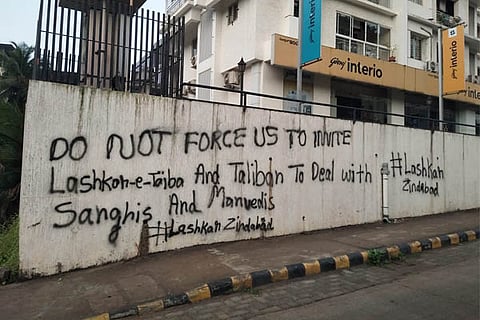 DO NOT FORCE US TO INVITE
Lashkar-e-Toiba And Taliban To Deal with
Sanghis And Manvedis
#Lashkar Zindabad
#Lashkar
Zindabad
Godrej interio
interio
interio